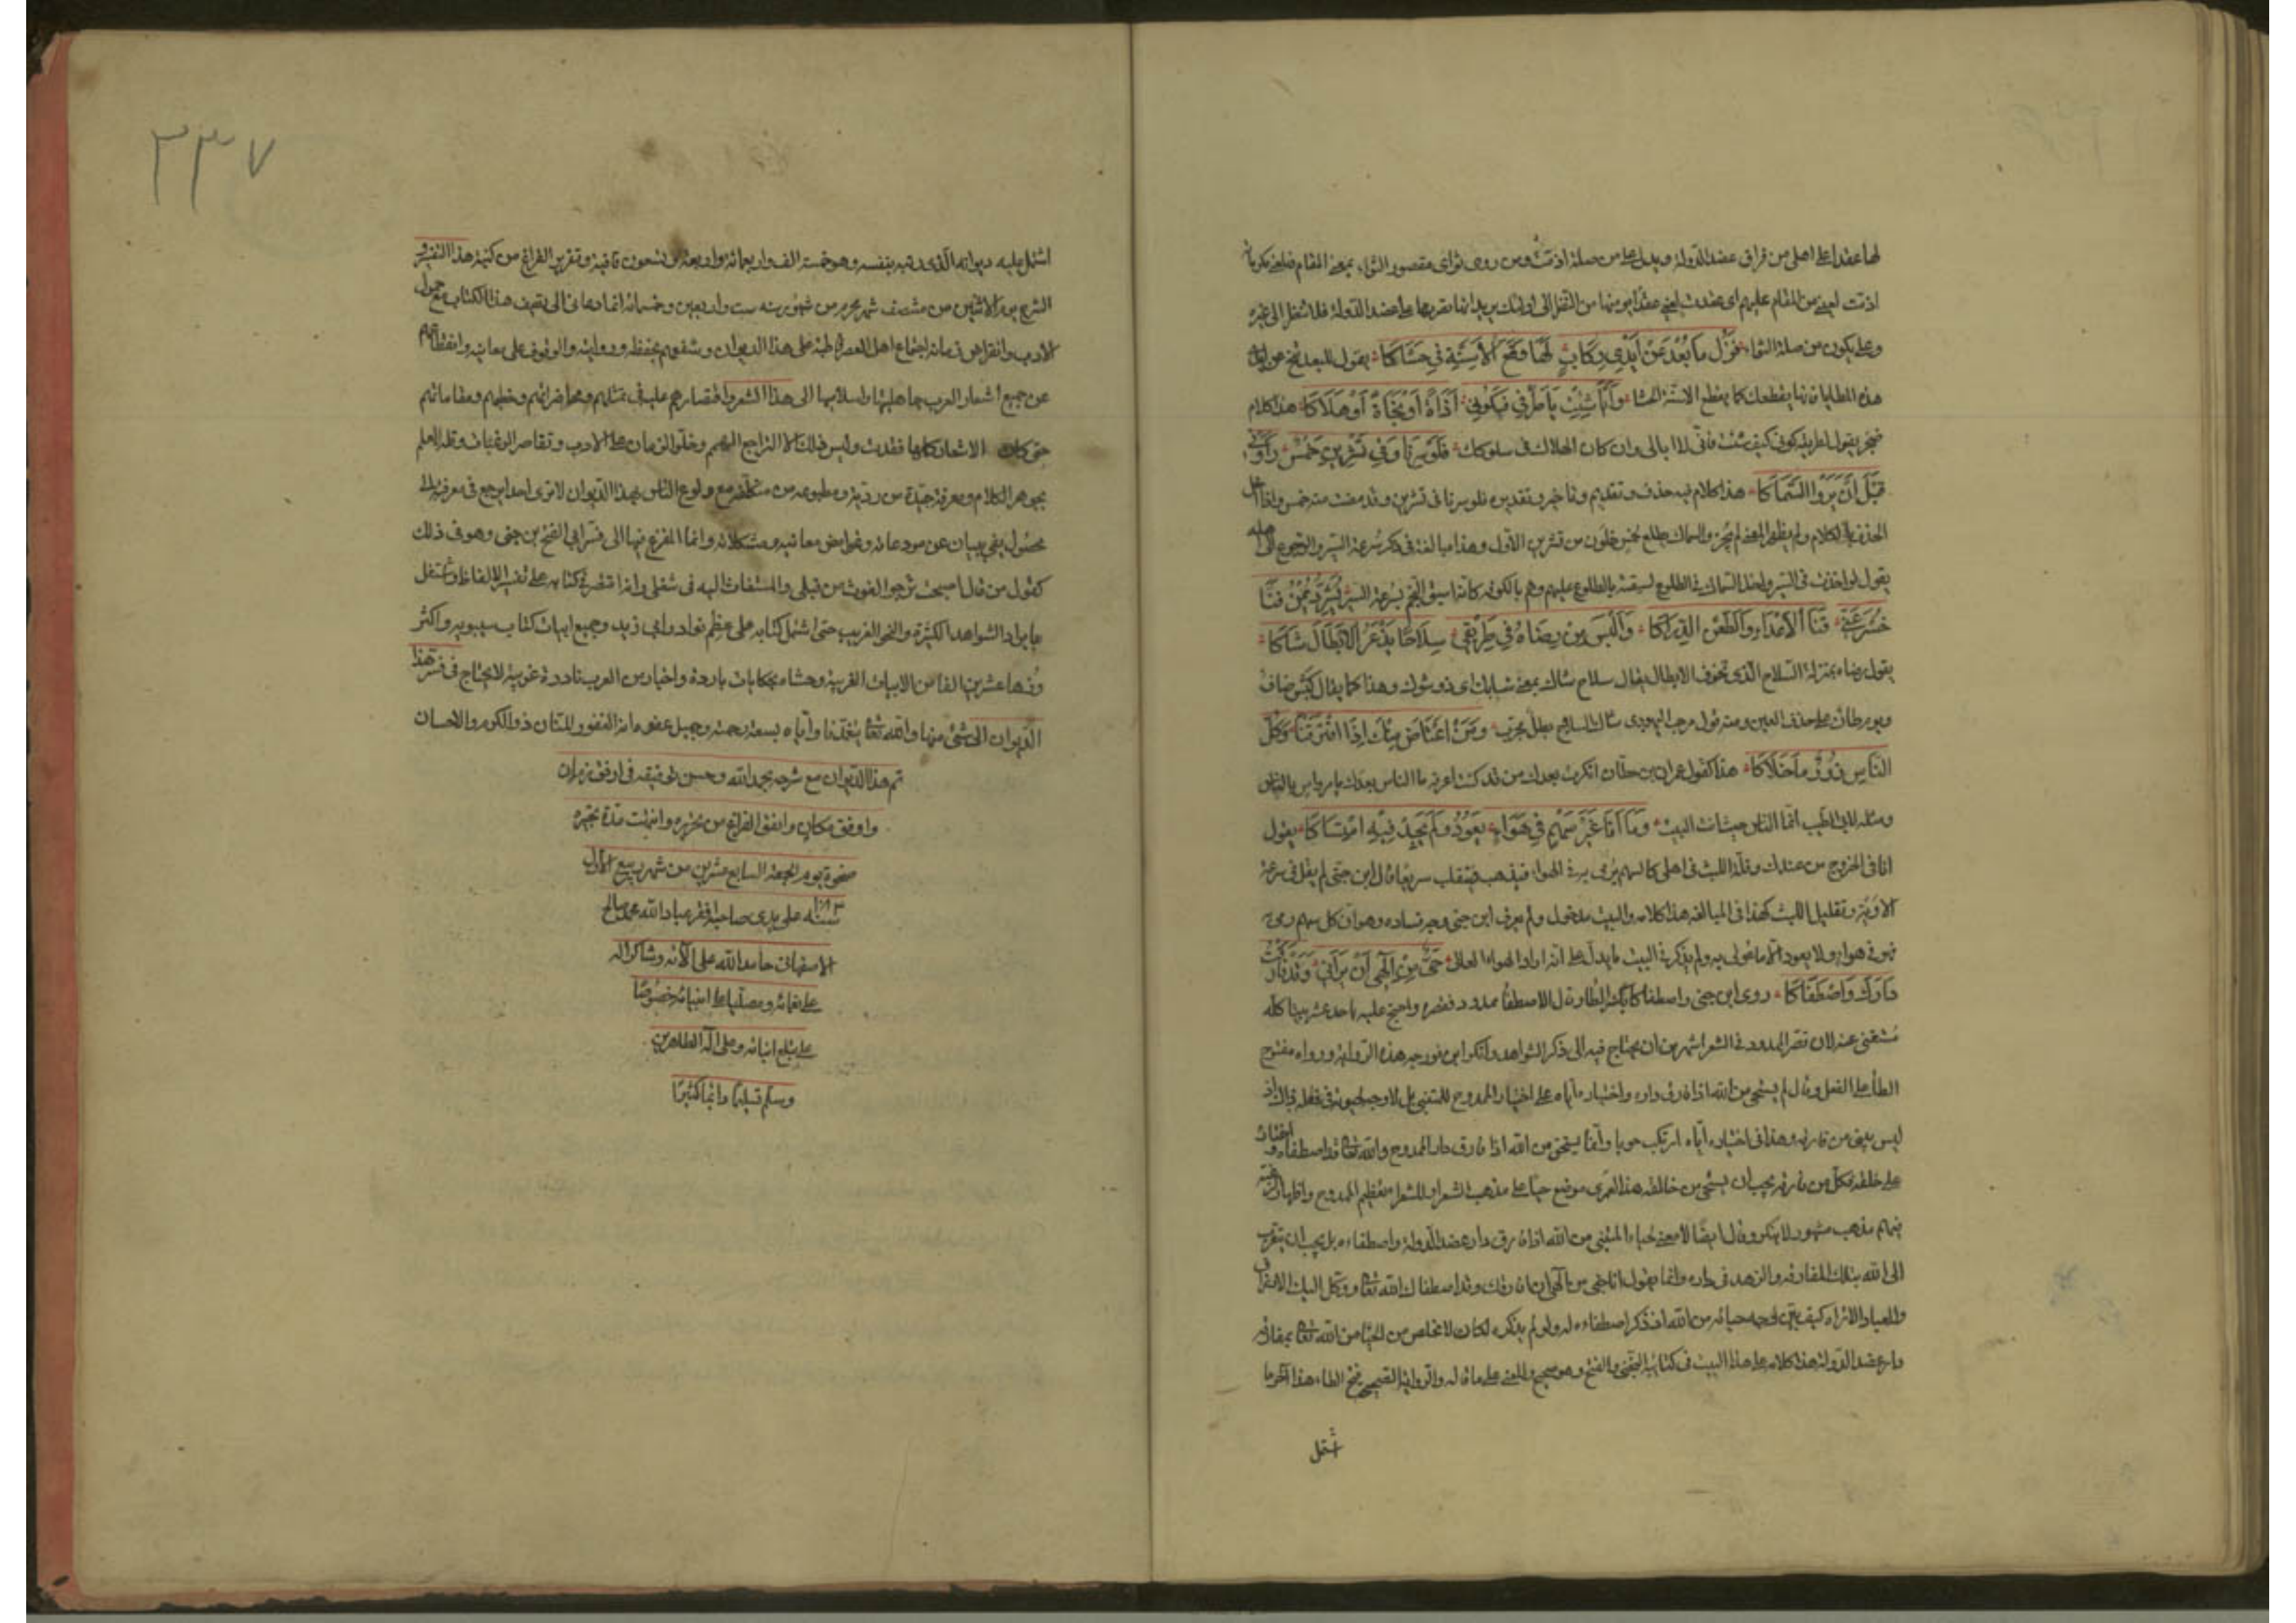 لها عقدا على اهلي من فراق عضد الدولة ويدل على من صلة اذمت ومن روى ثواى مقصور الثواء بمعنى المقام
اذمت لعيني من المقام عليهم اى عقدت لعيني عقدا
وعلى يكون من صلة الثواء فَزُلْ يَا بُعْدُ عَنْ أَيْدِي رِكَابٍ لَهَا وَقْعُ الأَسِنَّةِ فِي حَشَاكَا يقول للبعد تنح عن
هذه المطايا فانها يقطعك كما يقطع الاسنة الحشا وَأَيًّا شِئْتِ يَا طُرُقِي فَكُونِي أَذَاةً أَوْ نَجَاةً أَوْ هَلَاكَا هذا كلام
ضجر يقول لطريقه كوني كيف شئت فانى لا ابالى وان كان الهلاك فى سلوكك فَلَوْ سِرْنَا وَفِي تِشْرِينِ خَمْسٌ رَأَوْنِي
قَبْلَ أَنْ يَرَوُا السِّمَاكَا هذا كلام فيه حذف وتقديم وتاخير وتقديره فلو سرنا فى تشرين وقد مضت منه خمس واذا
الحذف بالكلام ولم يظهر المعنى لم يجز والسماك يطلع لخمس خلون من تشرين الاول وهذا مبالغة فى ذكر سرعة السير والرجوع الى اهله
يقول لو اخذت فى السير واخذ السماك فى الطلوع لسبقته بالطلوع عليهم وهم بالكوفة كانه اسبق النجم بسرعة السير يُشَرِّدُ يُمْنُ فَنَّا
خُسْرَ عَنِّي قَنَا الأَعْدَاءِ وَالطَّعْنَ الدِّرَاكَا وَأَلْبَسُ مِنْ رِضَاهُ فِي طَرِيقِي سِلَاحًا يَذْعَرُ الأَبْطَالَ شَاكَا
يقول رضاه بمنزلة السلاح الذى تخوف الابطال يقال سلاح شاك بمعنى شايك اى ذو شوك وهذا كما يقال كبش صاف
ويوم طان على حذف العين ومنه قول مرحب اليهودى شاك السلاح بطل مجرب وَمَنْ أَعْتَاضُ مِنْكَ إِذَا افْتَرَقْنَا وَكُلُّ
النَّاسِ زُورٌ مَا خَلَاكَا هذا كقول عمران بن حطان انكرت بعدك من قد كنت اعرفه ما الناس بعدك يا مرداس بالناس
ومثله لابى الطيب انما الناس حيث انت البيت وَمَا أَنَا غَيْرُ سَهْمٍ فِي هَوَاءٍ يَعُودُ وَلَمْ يَجِدْ فِيهِ امْتِسَاكَا يقول
انا فى الخروج من عندك وقلة اللبث فى اهلى كالسهم يرمى به فى الهواء فيذهب فينقلب سريعا قال ابن جنى لم يقل فى سرعة
الاوبة وتقليل اللبث كهذا فى المبالغة هذا كلامه والبيت مدخول ولم يعرف ابن جنى وجه فساده وهو ان كل سهم رمى
فهو فى هواء ولا يعود الا ما عولى به ولم يذكر فى البيت ما يدل على انه اراد الهواء العالى حَيِيٌّ مِنْ إِلَهِي أَنْ يَرَانِي وَقَدْ فَارَقْتُ
دَارَكَ وَاصْطَفَاكَا روى ابن جنى واصطفاكا بكسر الطاء وقال الاصطفاء ممدود فقصره واحتج عليه باحد عشر بيتا كله
مستغنى عنه لان قصر الممدود فى الشعر اشهر من ان يحتاج فيه الى ذكر الشواهد وانكر ابن فورجه هذه الرواية ورواه مفتوح
الطاء على الفعل وقال لم يستحى من الله اذا فارق داره
ليس بيغى من فارقه وهذا فى اختياره اياه ارتكب حوبا وانما يستحى من الله اذا فارق دار الممدوح والله تعالى قد اصطفاه
على خلقه فكل من فارقه يجب ان يستحى من خالقه هذا لعمرى موضع حياء على مذهب الشعراء وللشعراء تعظيم الممدوح
مذهب مشهور لا ينكر وقال ايضا لا معنى لحياء المتنبى من الله اذا فارق دار عضد الدولة واصطفاءه بل يجب ان يتقرب
الى الله بتلك المفارقة والزهد فى داره وانما يقول انا حيى من الهى ان فارقتك وقد اصطفاك الله تعالى ووكل اليك
والعباد الا تراه كيف بين وجه حيائه من الله اذ ذكر اصطفاءه له ولو لم يذكره لكان لا تخلص من الحياء من الله تعالى بمفارقة
دار عضد الدولة هذا كلامه على هذا البيت فى كتابيه التجنى والفتح وهو صحيح والمعنى على ما قاله والرواية الصحيحة بفتح الطاء هذا آخر ما
اشتمل
٣٣٧
اشتمل عليه ديوانه الذى رتبه بنفسه وهو خمسة الف واربعمائة واربعة وتسعون قافية وتقرير الفراغ من كتبة هذا التفسير و
الشرح يوم الاثنين من منتصف شهر محرم من شهور سنه ست واربعين وخمسمائة انما دعانى الى تصنيف هذا الكتاب مع خمول
الادب وانقراض زمانه اجتماع اهل العصر قاطبة على هذا الديوان وشغفهم بحفظه وروايته والوقوف على معانيه وانقطاعهم
عن جميع اشعار العرب جاهليها واسلاميها الى هذا الشعر واقتصارهم عليه فى تمثلهم ومحاضراتهم وخطبهم ومقاماتهم
حتى كان الاشعار كلها فقدت وليس ذلك الا لتراجع الهمم وخلو الزمان عن الادب وتقاصر الرغبات وقلة العلم
بجوهر الكلام ومعرفة جيده من رديه ومطبوعه من متكلفه مع ولوع الناس بهذا الديوان لا ترى احدا يرجع فى معرفته الى
محصول يفى ببيان عن مودعاته وغوامض معانيه ومشكلاته وانما المفزع فيها الى فسر ابى الفتح بن جنى وهو فى ذلك
كقول من قال اصبحت ترجو الغوث من قبلى والمستغاث اليه فى شغلى وانه اقتصر فى كتابه على تفسير الالفاظ واشتغل
بايراد الشواهد الكثيرة والنحو الغريب حتى اشتمل كتابه على معظم نوادر ابى زيد وجميع ابيات كتاب سيبويه واكثر
وزهاء عشرين الفا من الابيات الغريبة وحشاه بحكايات باردة واخبار من العرب نادرة غريبة لا يحتاج فى فسر هذا
الديوان الى شئ منها والله تعالى يتغمدنا واياه بسعة رحمته وجميل عفوه انه الغفور المنان ذو الكرم والاحسان
تم هذا الديوان مع شرحه بحمد الله وحسن توفيقه فى اوفق زمان
واوفق مكان واتفق الفراغ من تحريره وانتهت مدة
ضحوة يوم الجمعة السابع عشرين من شهر ربيع الاول
سنه على يدى صاحبه افقر عباد الله محمد صالح
الاصفهانى حامدا لله على آلائه وشاكرا له
على نعمائه ومصليا على انبيائه خصوصا
على مبلغ انبائه وعلى آله الطاهرين
وسلم تسليما دائما كثيرا